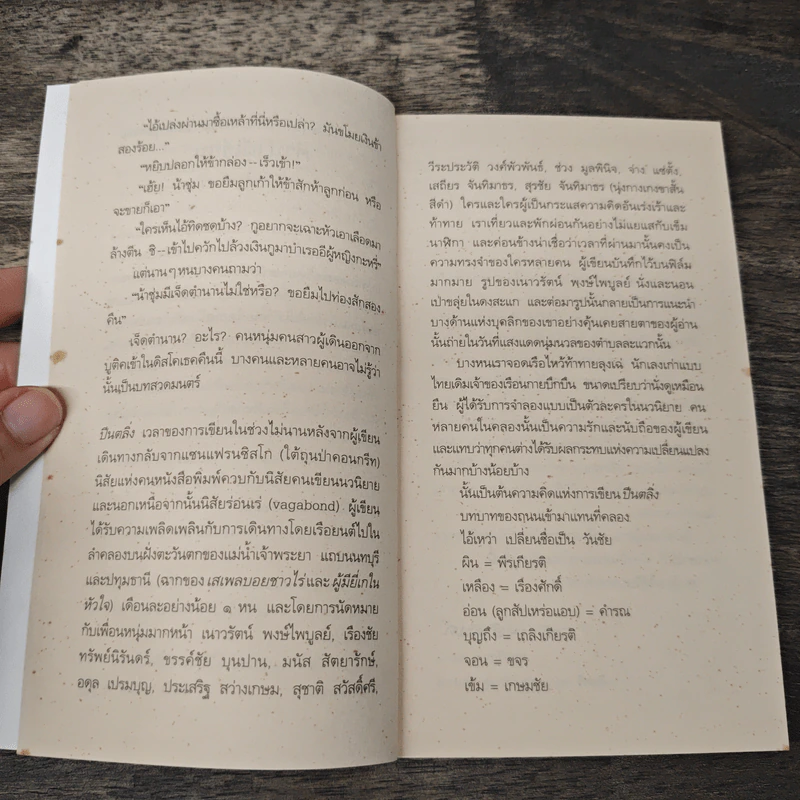 "ไอ้เปล่งผ่านมาซื้อเหล้าที่นี่หรือเปล่า? มันขโมยเงินข้า
สองร้อย..."
"หยิบปลอกให้ข้ากล่อง--เร็วเข้า!"
"เฮ้ย! น้าชุ่ม ขอยืมลูกเก้าให้ข้าสักห้าลูกก่อน หรือ
จะขายก็เอา"
"ใครเห็นไอ้ทิดชดบ้าง? กูอยากจะเฉาะหัวเอาเลือดมา
ล้างตีน ชิ--เข้าไปควักไปล้วงเงินกูมาบำเรออีผู้หญิงกะหรี่"
แต่นานๆ หนบางคนถามว่า
"น้าชุ่มมีเจ็ดตำนานไม่ใช่หรือ? ขอยืมไปท่องสักสอง
คืน"
เจ็ดตำนาน? อะไร? คนหนุ่มคนสาวผู้เดินออกจาก
บูติคเข้าในดิสโคเธคคืนนี้ บางคนและหลายคนอาจไม่รู้ว่า
นั้นเป็นบทสวดมนตร์
ปีนตลิ่ง เวลาของการเขียนในช่วงไม่นานหลังจากผู้เขียน
เดินทางกลับจากแซนแฟรนซิสโก (ใต้ถุนป่าคอนกรีท)
นิสัยแห่งคนหนังสือพิมพ์ควบกับนิสัยคนเขียนนวนิยาย
และนอกเหนือจากนั้นนิสัยร่อนเร่ (vagabond) ผู้เขียน
ได้รับความเพลิดเพลินกับการเดินทางโดยเรือยนต์ไปใน
ลำคลองบนฝั่งตะวันตกของแม่น้ำเจ้าพระยา แถบนนทบุรี
และปทุมธานี (ฉากของ เสเพลบอยชาวไร่ และ ผู้มียี่เกใน
หัวใจ) เดือนละอย่างน้อย ๑ หน และโดยการนัดหมาย
กับเพื่อนหนุ่มมากหน้า เนาวรัตน์ พงษ์ไพบูลย์, เรืองชัย
ทรัพย์นิรันดร์, ขรรค์ชัย บุนปาน, มนัส สัตยารักษ์,
อดุล เปรมบุญ, ประเสริฐ สว่างเกษม, สุชาติ สวัสดิ์ศรี,
วีระประวัติ วงศ์พัวพันธุ์, ช่วง มูลพินิจ, จ่าง แซ่ตั้ง,
เสถียร จันทิมาธร, สุรชัย จันทิมาธร (นุ่งกางเกงขาสั้น
สีดำ) ใครและใครผู้เป็นกระแสความคิดอันเร่งเร้าและ
ท้าทาย เราเที่ยวและพักผ่อนกันอย่างไม่แยแสกับเข็ม
นาฬิกา และค่อนข้างน่าเชื่อว่าเวลาที่ผ่านมานั้นคงเป็น
ความทรงจำของใครหลายคน ผู้เขียนบันทึกไว้บนฟิล์ม
มากมาย รูปของเนาวรัตน์ พงษ์ไพบูลย์ นั่งและนอน
เป่าขลุ่ยในดงสะแก และต่อมารูปนั้นกลายเป็นการแนะนำ
บางด้านแห่งบุคลิกของเขาอย่างคุ้นเคยสายตาของผู้อ่าน
นั้นถ่ายในวันที่แสงแดดนุ่มนวลของตำบลละแวกนั้น
บางหนเราจอดเรือไหว้ท้าทายลุงเฉ่ นักเลงเก่าแบบ
ไทยเดิมเจ้าของเรือนกายบึกบึน ขนาดเปรียบว่านั่งดูเหมือน
ยืน ผู้ได้รับการจำลองแบบเป็นตัวละครในนวนิยาย คน
หลายคนในคลองนั้นเป็นความรักและนับถือของผู้เขียน
และแทบว่าทุกคนต่างได้รับผลกระทบแห่งความเปลี่ยนแปลง
กันมากบ้างน้อยบ้าง
นั้นเป็นต้นความคิดแห่งการเขียน ปีนตลิ่ง
บทบาทของถนนเข้ามาแทนที่คลอง
ไอ้เหว่า เปลี่ยนชื่อเป็น วันชัย
ผิน = พีรเกียรติ
เหลือง = เรืองศักดิ์
อ่อน (ลูกสัปเหร่อแอบ) = คำรณ
บุญถึง = เถลิงเกียรติ
จอน = ขจร
เข้ม = เกษมชัย